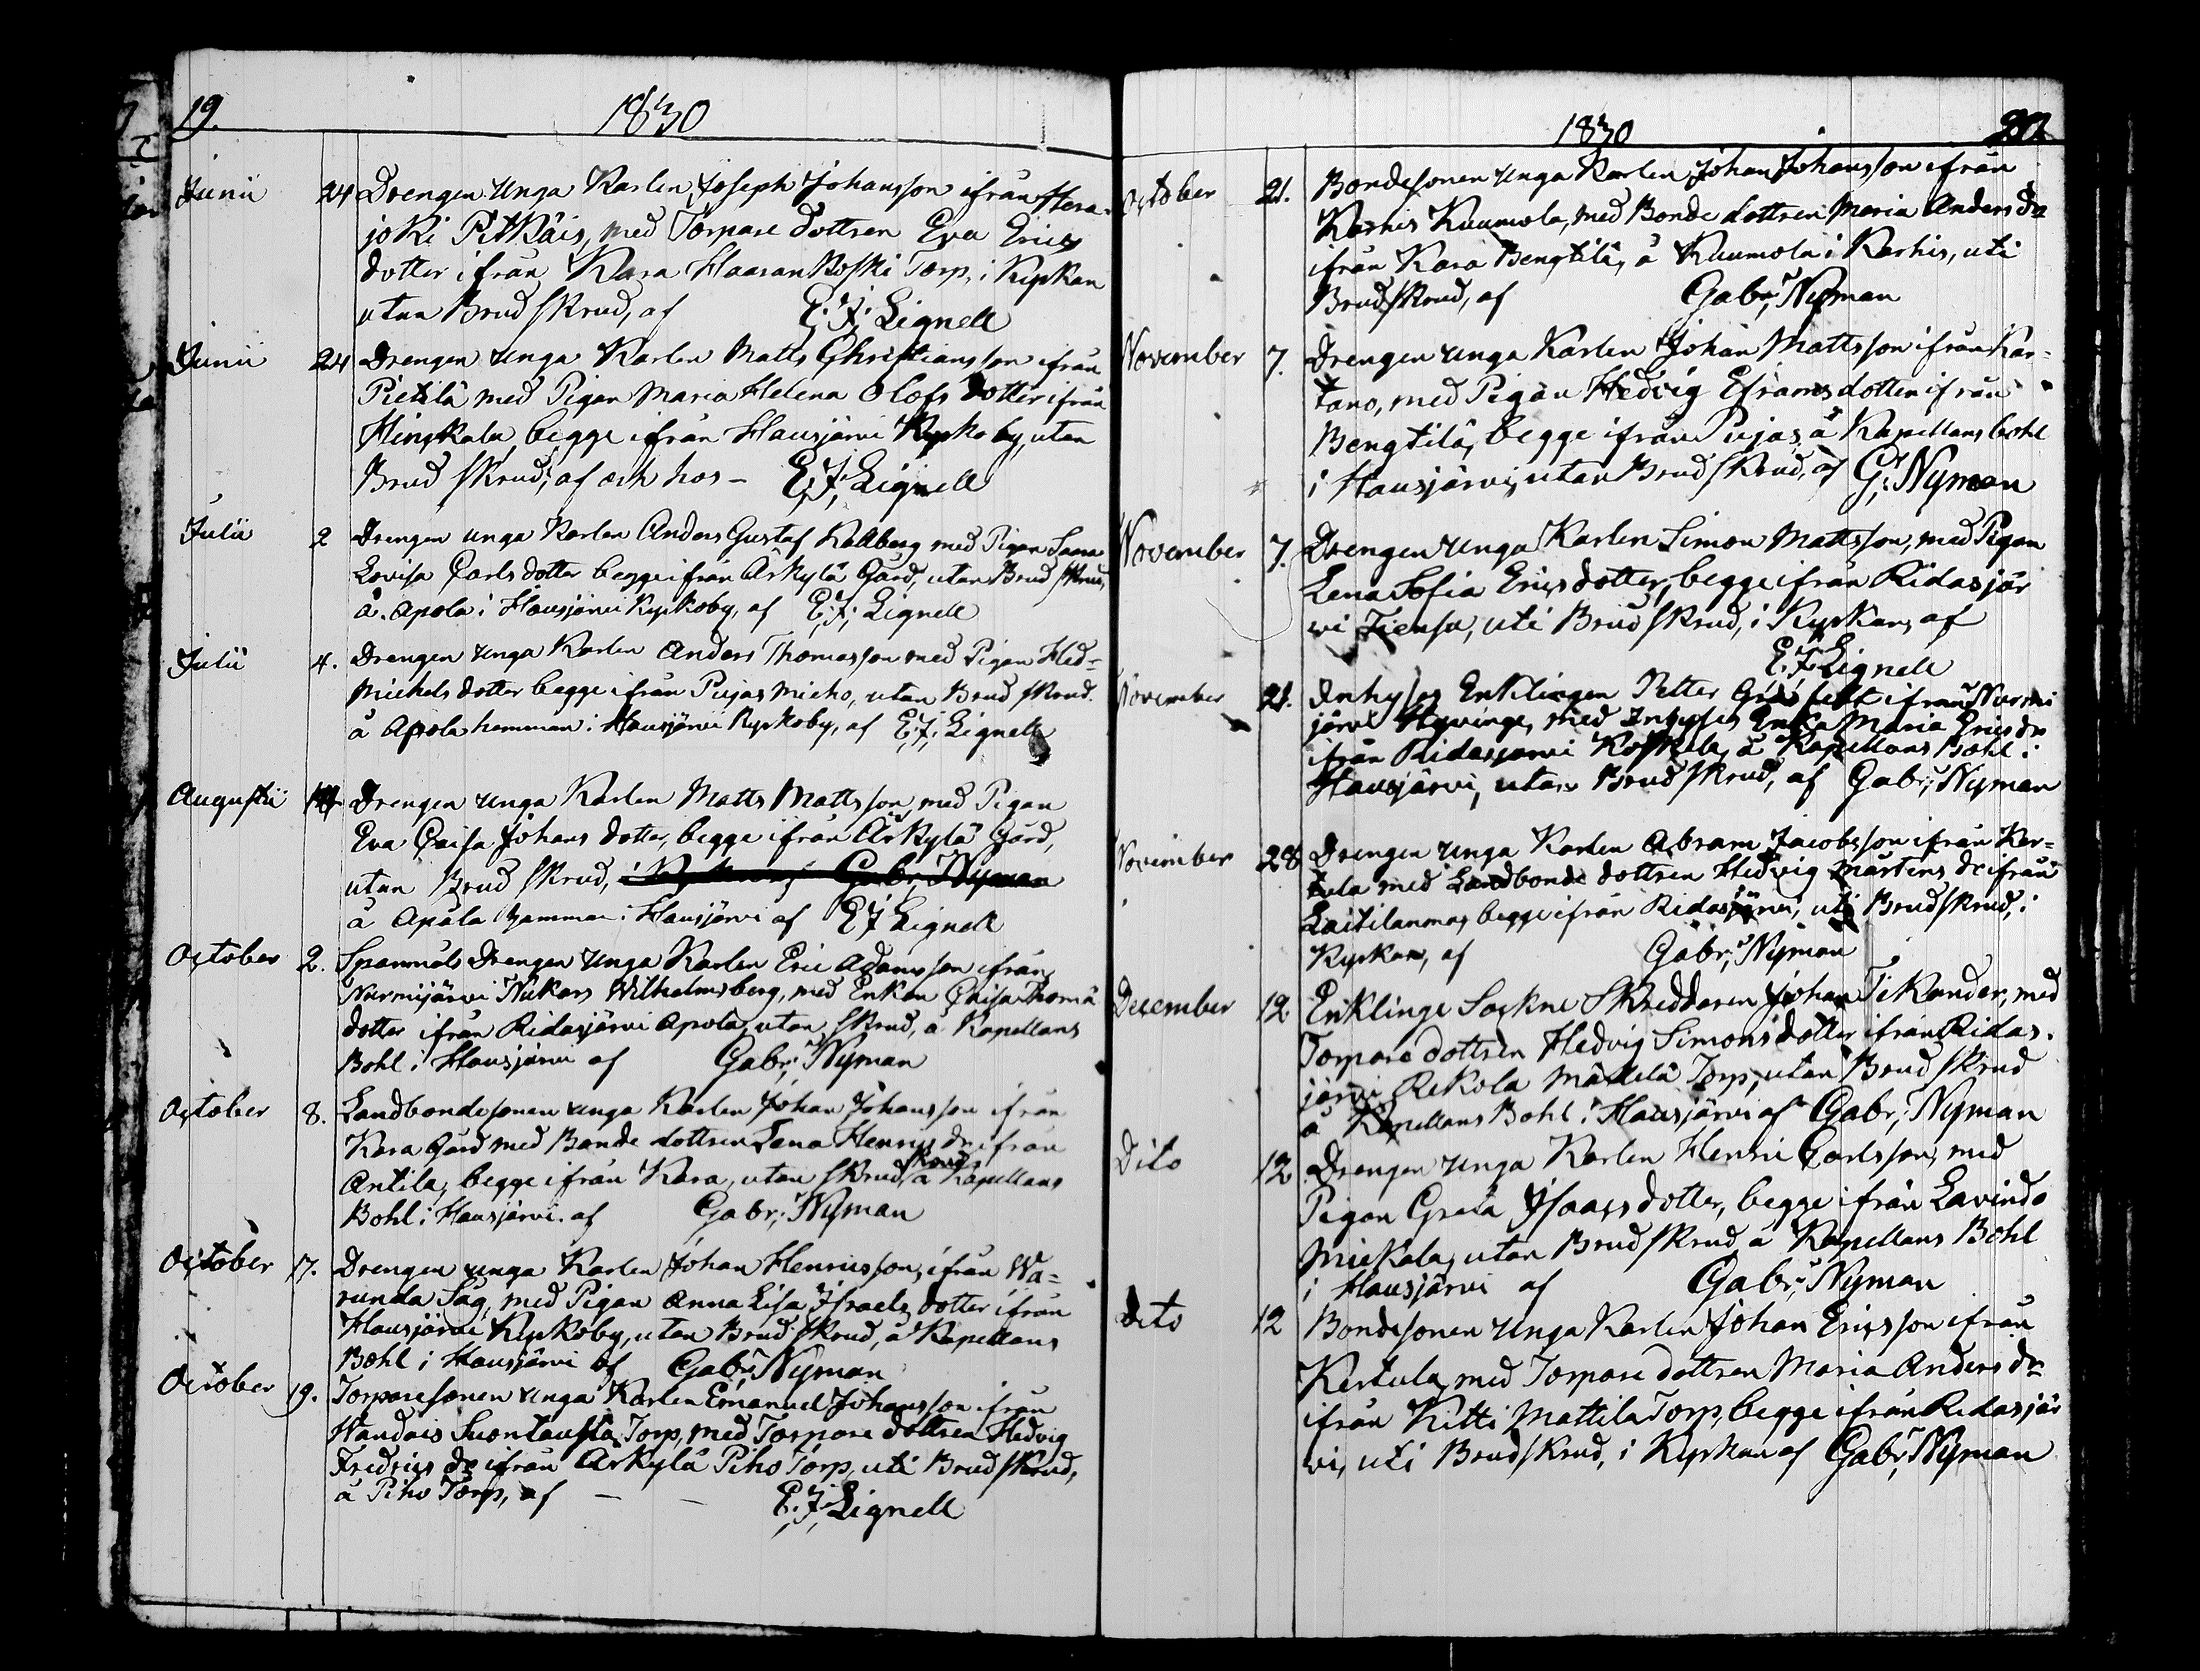 19.
1830
Junii 24 Drengen unga Karlen Joseph Johansson ifrån Hera-
joki Pitkäis, med Torpare dottren Eva Erics
dotter ifrån Kara Haarankoski Torp, i Kyrkan
utan Brud skrud, af E. J. Lignell
Junii 24 Drengen unga Karlen Matts Christiansson ifrån
Pietilä med Pigan Maria Helena Olofs dotter ifrån
Hinskala begge ifrån Hausjärvi Kyrko by, utan
Brud skrud, af och hos - E. J. Lignell
Julii 2 Drengen unga Karlen Anders Gustaf Kallberg med Pigan Saara
Lovisa Carls dotter begge ifrån Ärkylä Gård, utan Brud skrud,
å Apola i Hausjärvi Kyrkoby, af E. J. Lignell
Julii 4. Drengen unga Karlen Anders Thomasson med Pigan Hed-
Michels dotter begge ifrån Pujas Micko, utan Brud skrud.
å Apola hemman i Hausjärvi Kyrkoby, af E. J. Lignell
Augustii Drengen unga Karlen Matts Mattsson, med Pigan
Eva Caisa Johans dotter, begge ifrån Ärkylä Gård,
utan Brud skrud, i Kyrkan af Gabr; Nyman
å Apåla hamman i Hausjärvi af E J Lignell
October 2. Spanmåls Drengen unga Karlen Eric Adamsson ifrån
Nurmijärvi Nukars Wilhelmsberg, med Enkan Caisa Thomæ
dotter ifrån Ridasjärvi Apola, utan skrud, å Kapellans
Bohl i Hausjärvi af Gabr; Nyman
October 8. Landbondesonen unga Karlen Johan Johansson ifrån
Kara Gård med Bonde dottren Lena Henrics dr ifrån
skrud
Antila, begge ifrån Kara, utan skrud å Kapellans
Bohl i Hausjärvi. af Gabr; Nyman
October 17. Drengen unga Karlen Johan Henricsson, ifrån Wa-
runda Såg, med Pigan Anna Lisa Israels dotter ifrån
Hausjärvi Kyrkoby, utan Brud skrud, å Kapellans
Bohl i Hausjärvi af Gabr; Nyman
October 19. Torparesonen unga Karlen Emanuel Johansson ifrån
Handois Suontausta Torp, med Torpare dottren Hedvig
Fredrics dr ifrån Ärkylä Piho Torp, uti Brud skrud,
å Piho Torp, af - - E. J. Lignell
1830
20
October 21. Bondesonen unga Karlen Johan Johansson ifrån
Karhis Kuumola, med Bonde dottren Maria Anders dr
ifrån Kara Bengtilä, å Kuumola i Karhis, uti
Brudskrud, af Gabr; Nyman
November 7. Drengen unga Karlen Johan Mattsson ifrån Kar-
tano, med Pigan Hedvig Eframs dotter ifrån
Bengtilä, begge ifrån Pujas, å Kapellans bohl
i Hausjärvi, utan Brud skrud, af G; Nyman
November 7. Drengen unga Karlen Simon Mattsson, med Pigan
Lena Sofia Erics dotter, begge ifrån Ridasjär
vi Tiensu, uti Brud skrud, i Kyrkan, af
E. J. Lignell
November 21. Inhyses Enklingen Petter ifrån Nurmi
järvi Hyvinge, med Inhyses Enka Maria Erics dr
ifrån Ridasjärvi Koskela, å Kapellans Bohl i
Hausjärvi, utan Brud skrud, af Gabr; Nyman
November 28 Drengen unga Karlen Abram Jacobsson ifrån Ker-
tula med Landbonde dottren Hedvig Mårtens dr ifrån
Laitilanma, begge ifrån Ridasjärvi, uti Brud skrud, i
Kyrkan, af Gabr; Nyman
December 12 Enklinge Sockne Skreddaren Johan Tikander, med
Torpare dottren Hedvig Simons dotter ifrån Ridas-
järvi Rekola Mäkelä Torp, utan Brud skrud
å Kapellans Bohl i Hausjärvi af Gabr; Nyman
Dito 12 Drengen unga Karlen Henric Carlsson, med
Pigan Greta Isaacs dotter, begge ifrån Lavindo
Mickala, utan Brud skrud å Kapellans Bohl
i Hausjärvi af Gabr; Nyman
Dito 12 Bondesonen unga Karlen Johan Ericsson ifrån
Kertula, med Torpare dottren Maria Anders dr
ifrån Kitti Mattila Torp, begge ifrån Ridasjär
vi, uti Brud skrud, i Kyrkan af Gabr; Nyman